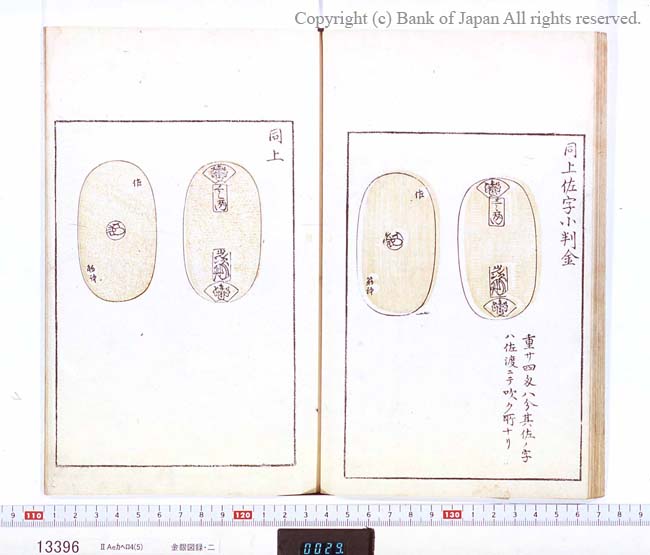 Copyright (c) Bank of Japan All rights reserved.
同上佐字小判金
佐
重サ四匁八分其佐ノ字
ハ佐渡ニテ吹ク所ナリ
同上
佐
9 110 1 2 3 4 5 6 7 8 9 120 1 2 3 4 5 6 7 8 9 130 1 2 3 4 5 6
13396 ⅡAeカヘロ4(5) 金銀図録・二
0029